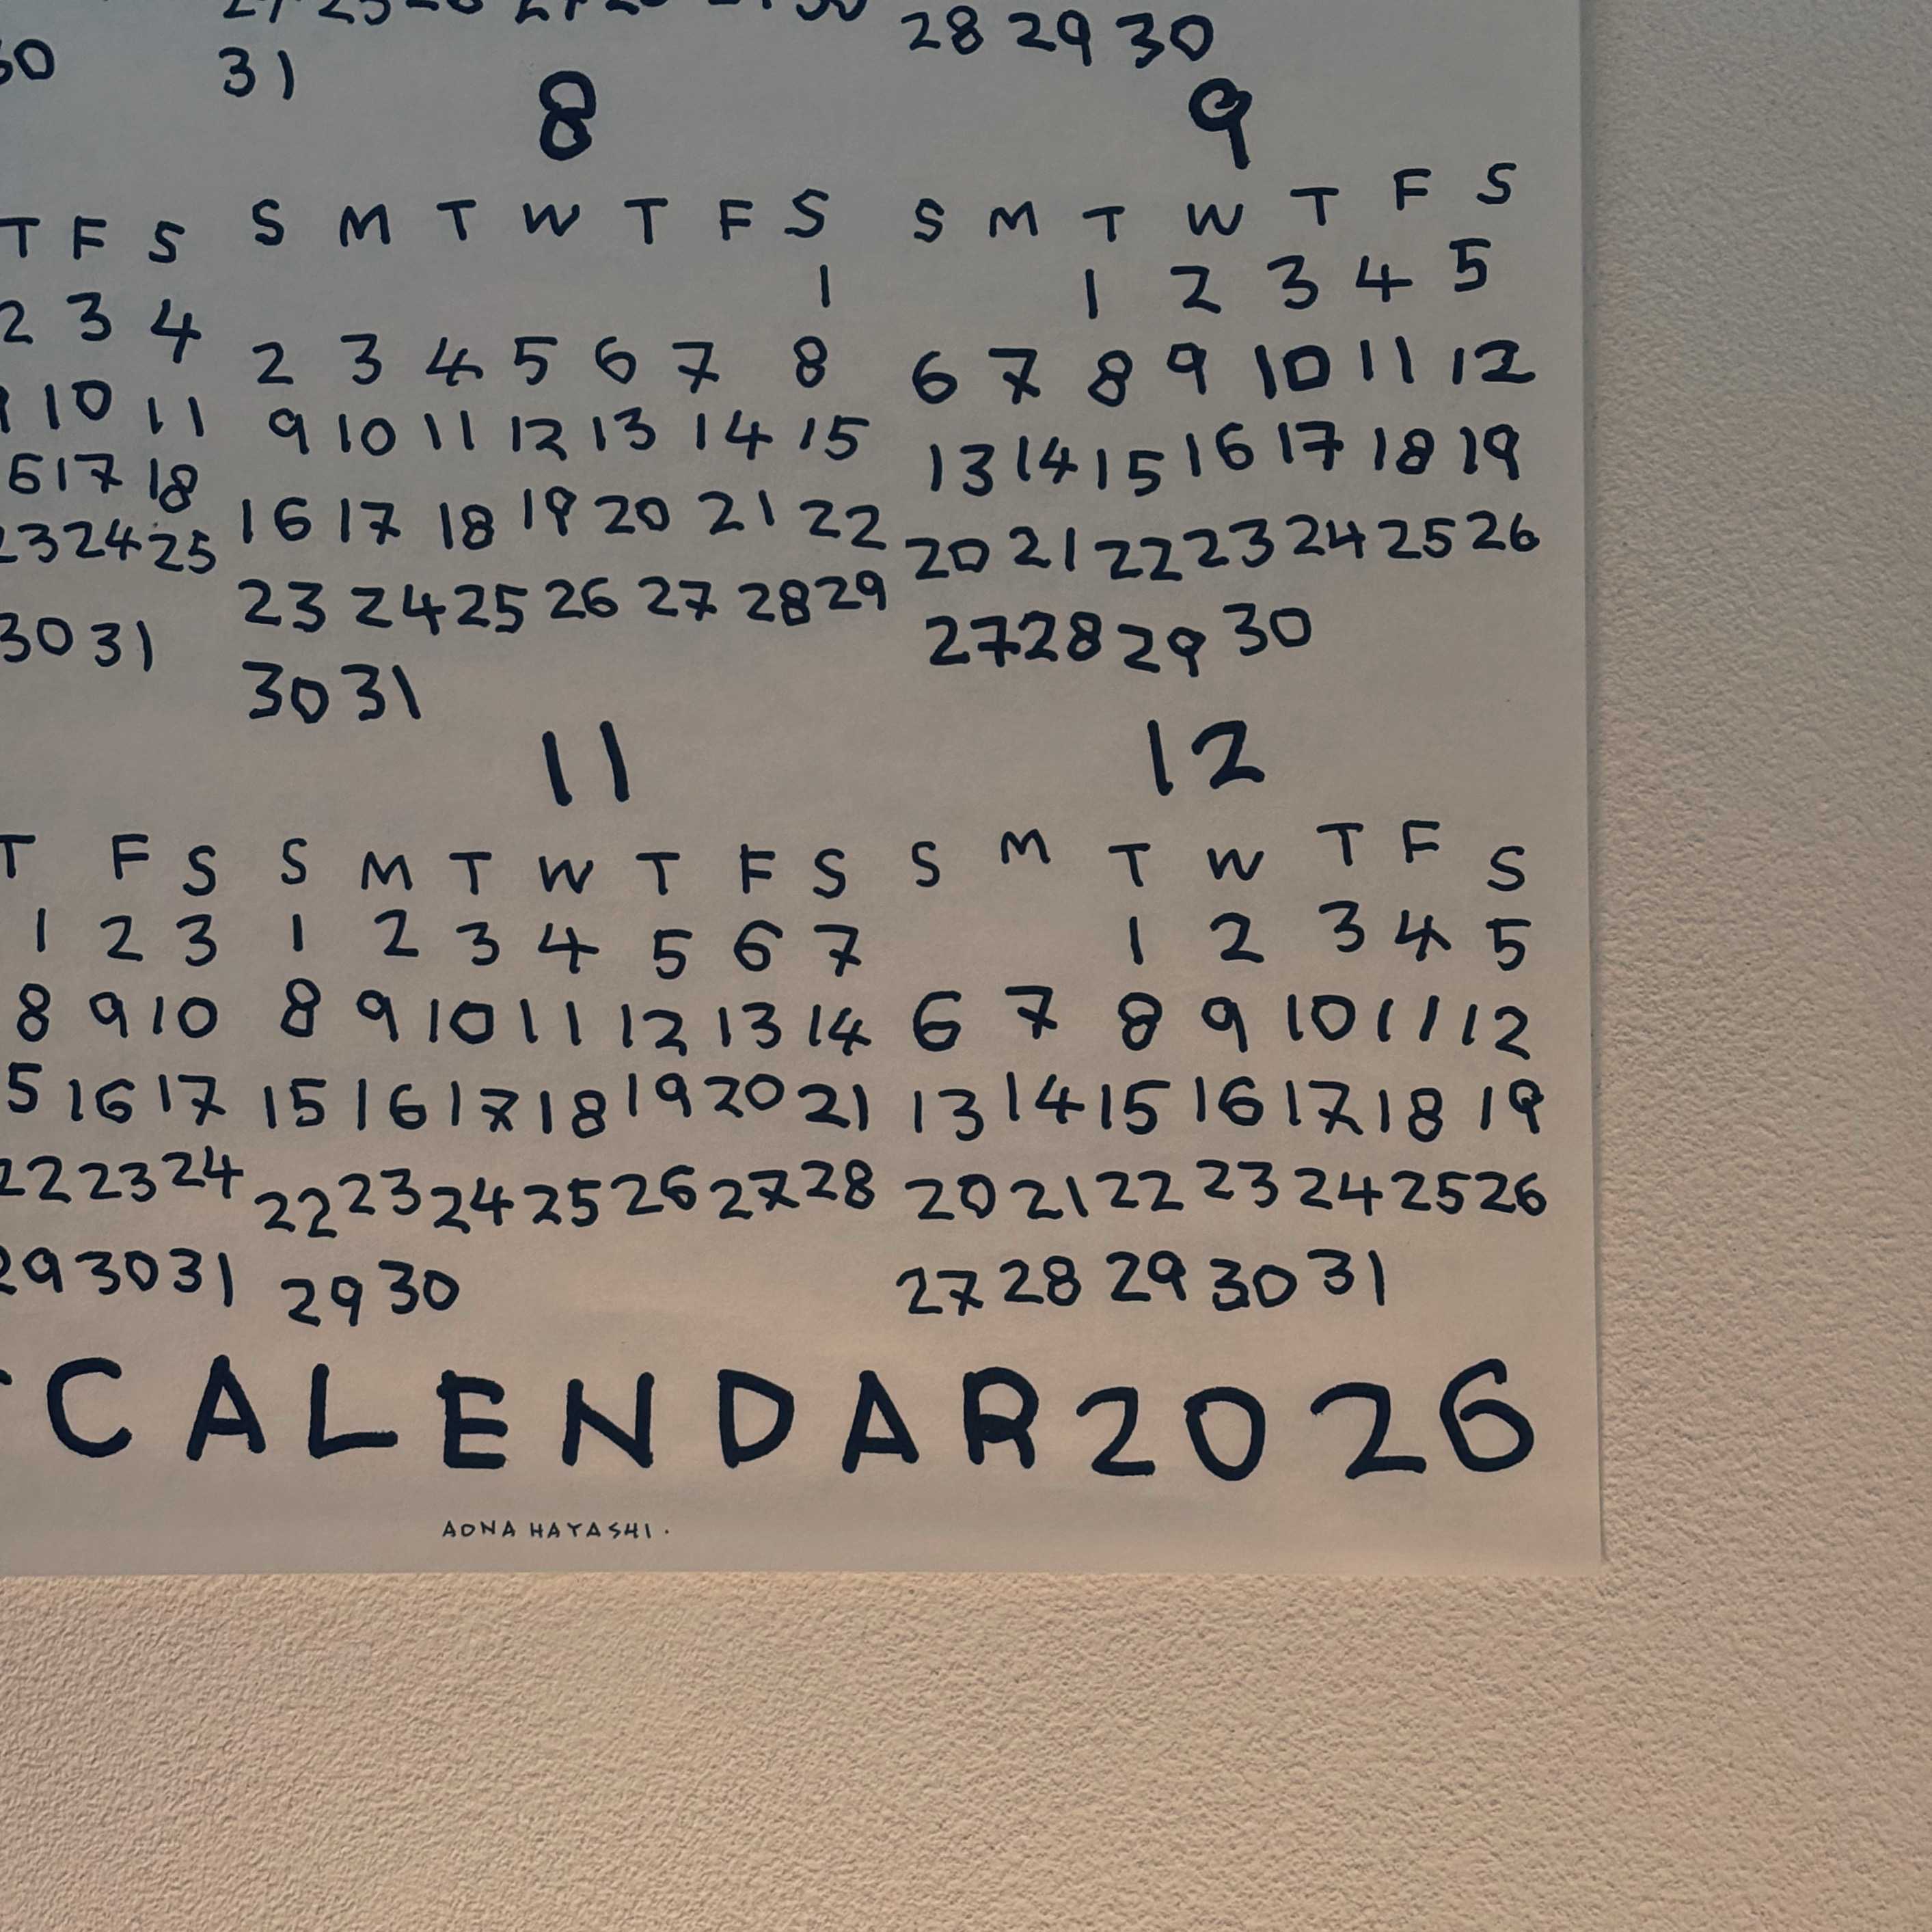 28 29 30
31
8
9
T F S
S M T W T F S
S M T W T F S
2 3 4
10 11
17 18
23 24 25
30 31
1
2 3 4 5 6 7 8
9 10 11 12 13 14 15
16 17 18 19 20 21 22
23 24 25 26 27 28 29
30 31
1 2 3 4 5
6 7 8 9 10 11 12
13 14 15 16 17 18 19
20 21 22 23 24 25 26
27 28 29 30
11
12
T F S
1 2 3
8 9 10
16 17
22 23 24
29 30 31
S M T W T F S
1 2 3 4 5 6 7
8 9 10 11 12 13 14
15 16 17 18 19 20 21
22 23 24 25 26 27 28
29 30
S M T W T F S
1 2 3 4 5
6 7 8 9 10 11 12
13 14 15 16 17 18 19
20 21 22 23 24 25 26
27 28 29 30 31
CALENDAR 2026
AONA HAYASHI.